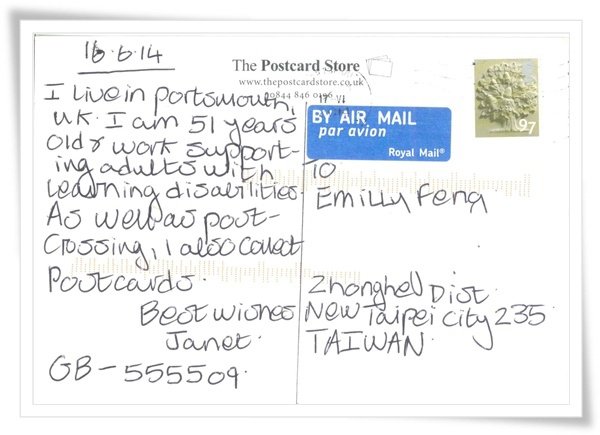 16.6.14
The Postcard Store
www.thepostcardstore.co.uk
0844 846 0196
I live in portsmouth,
UK. I am 51 years
old & work support-
ing adults with
learning disabilities.
As well as post-
crossing, I also collect
Postcards.
Best wishes
Janet.
GB - 555509.
BY AIR MAIL
par avion
Royal Mail®
97
To
Emilly Feng
Zhonghe Dist.
New Taipei City 235.
TAIWAN.